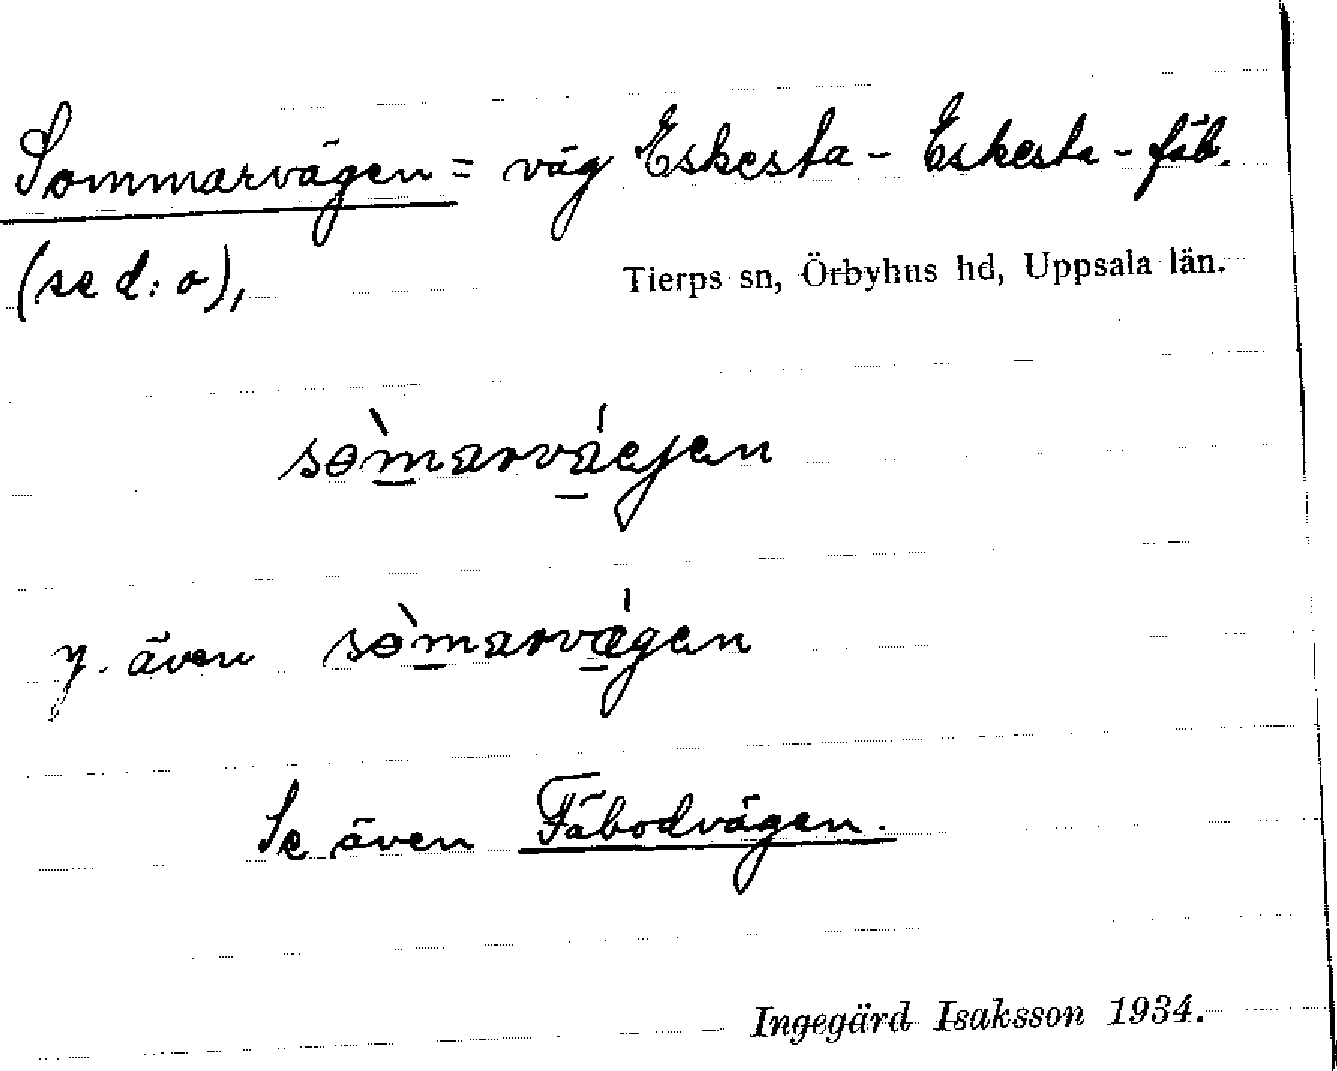 Sommarvägen = väg Eskesta - Eskesta - fäb.
(se d:o),
Tierps sn, Örbyhus hd, Uppsala län.
sɵ̀m̲arvá̲ejen
y. även sɵ̀m̲arvǽ̲gen
Se även Fäbodvägen.
Ingegärd Isaksson 1934.